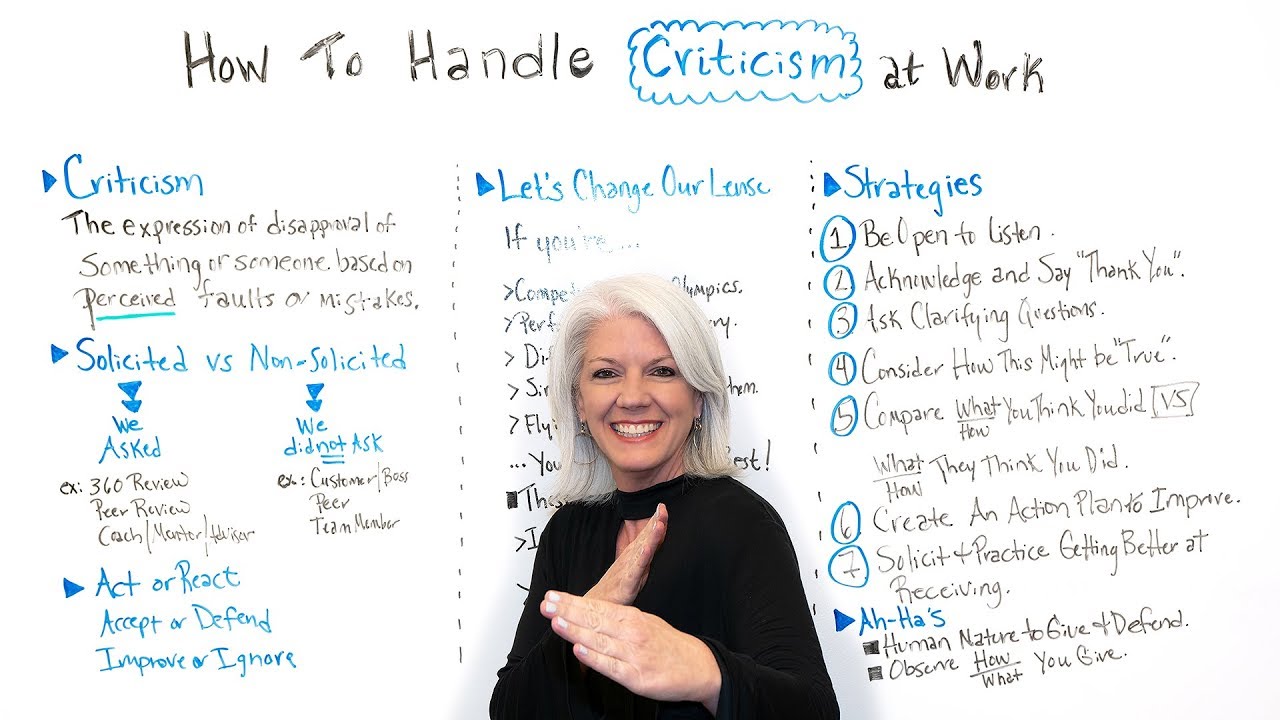 How To Handle Criticism at Work
Criticism
The expression of disapproval of
Something or someone based on
perceived faults or mistakes.
Solicited vs Non-Solicited
We
Asked
ex: 360 Review
Peer Review
Coach/Mentor/Advisor
We
did not Ask
ex: Customer/Boss
Peer
Team Member
Act or React
Accept or Defend
Improve or Ignore
Let's Change Our Lense
If you're...
>
Olympics.
>
>
>
>
...
!
■
>
Strategies
1 Be Open to Listen.
2 Acknowledge and Say "Thank You".
3 Ask Clarifying Questions.
4 Consider How This Might be "True".
5 Compare What/How You Think You did VS
What/How They Think You Did.
6 Create An Action Plan to Improve.
7 Solicit + Practice Getting Better at
Receiving.
Ah-Ha's
■ Human Nature to Give & Defend.
■ Observe How/What You Give.